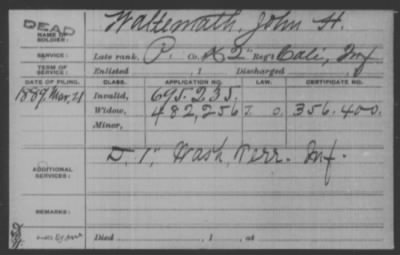 DEAD
NAME OF SOLDIER: Waltemath, John H.
SERVICE: Late rank, P. Co. K 2" Reg't Cali, Inf
TERM OF SERVICE: Enlisted 1 Discharged
DATE OF FILING. CLASS. APPLICATION NO. LAW. CERTIFICATE NO.
1889 Mar. 21 Invalid, 695.235.
Widow, 482,256 0. 356.400.
Minor,
D. 1", Wash, Terr. Inf.
ADDITIONAL SERVICES:
REMARKS:
Died , 1 , at